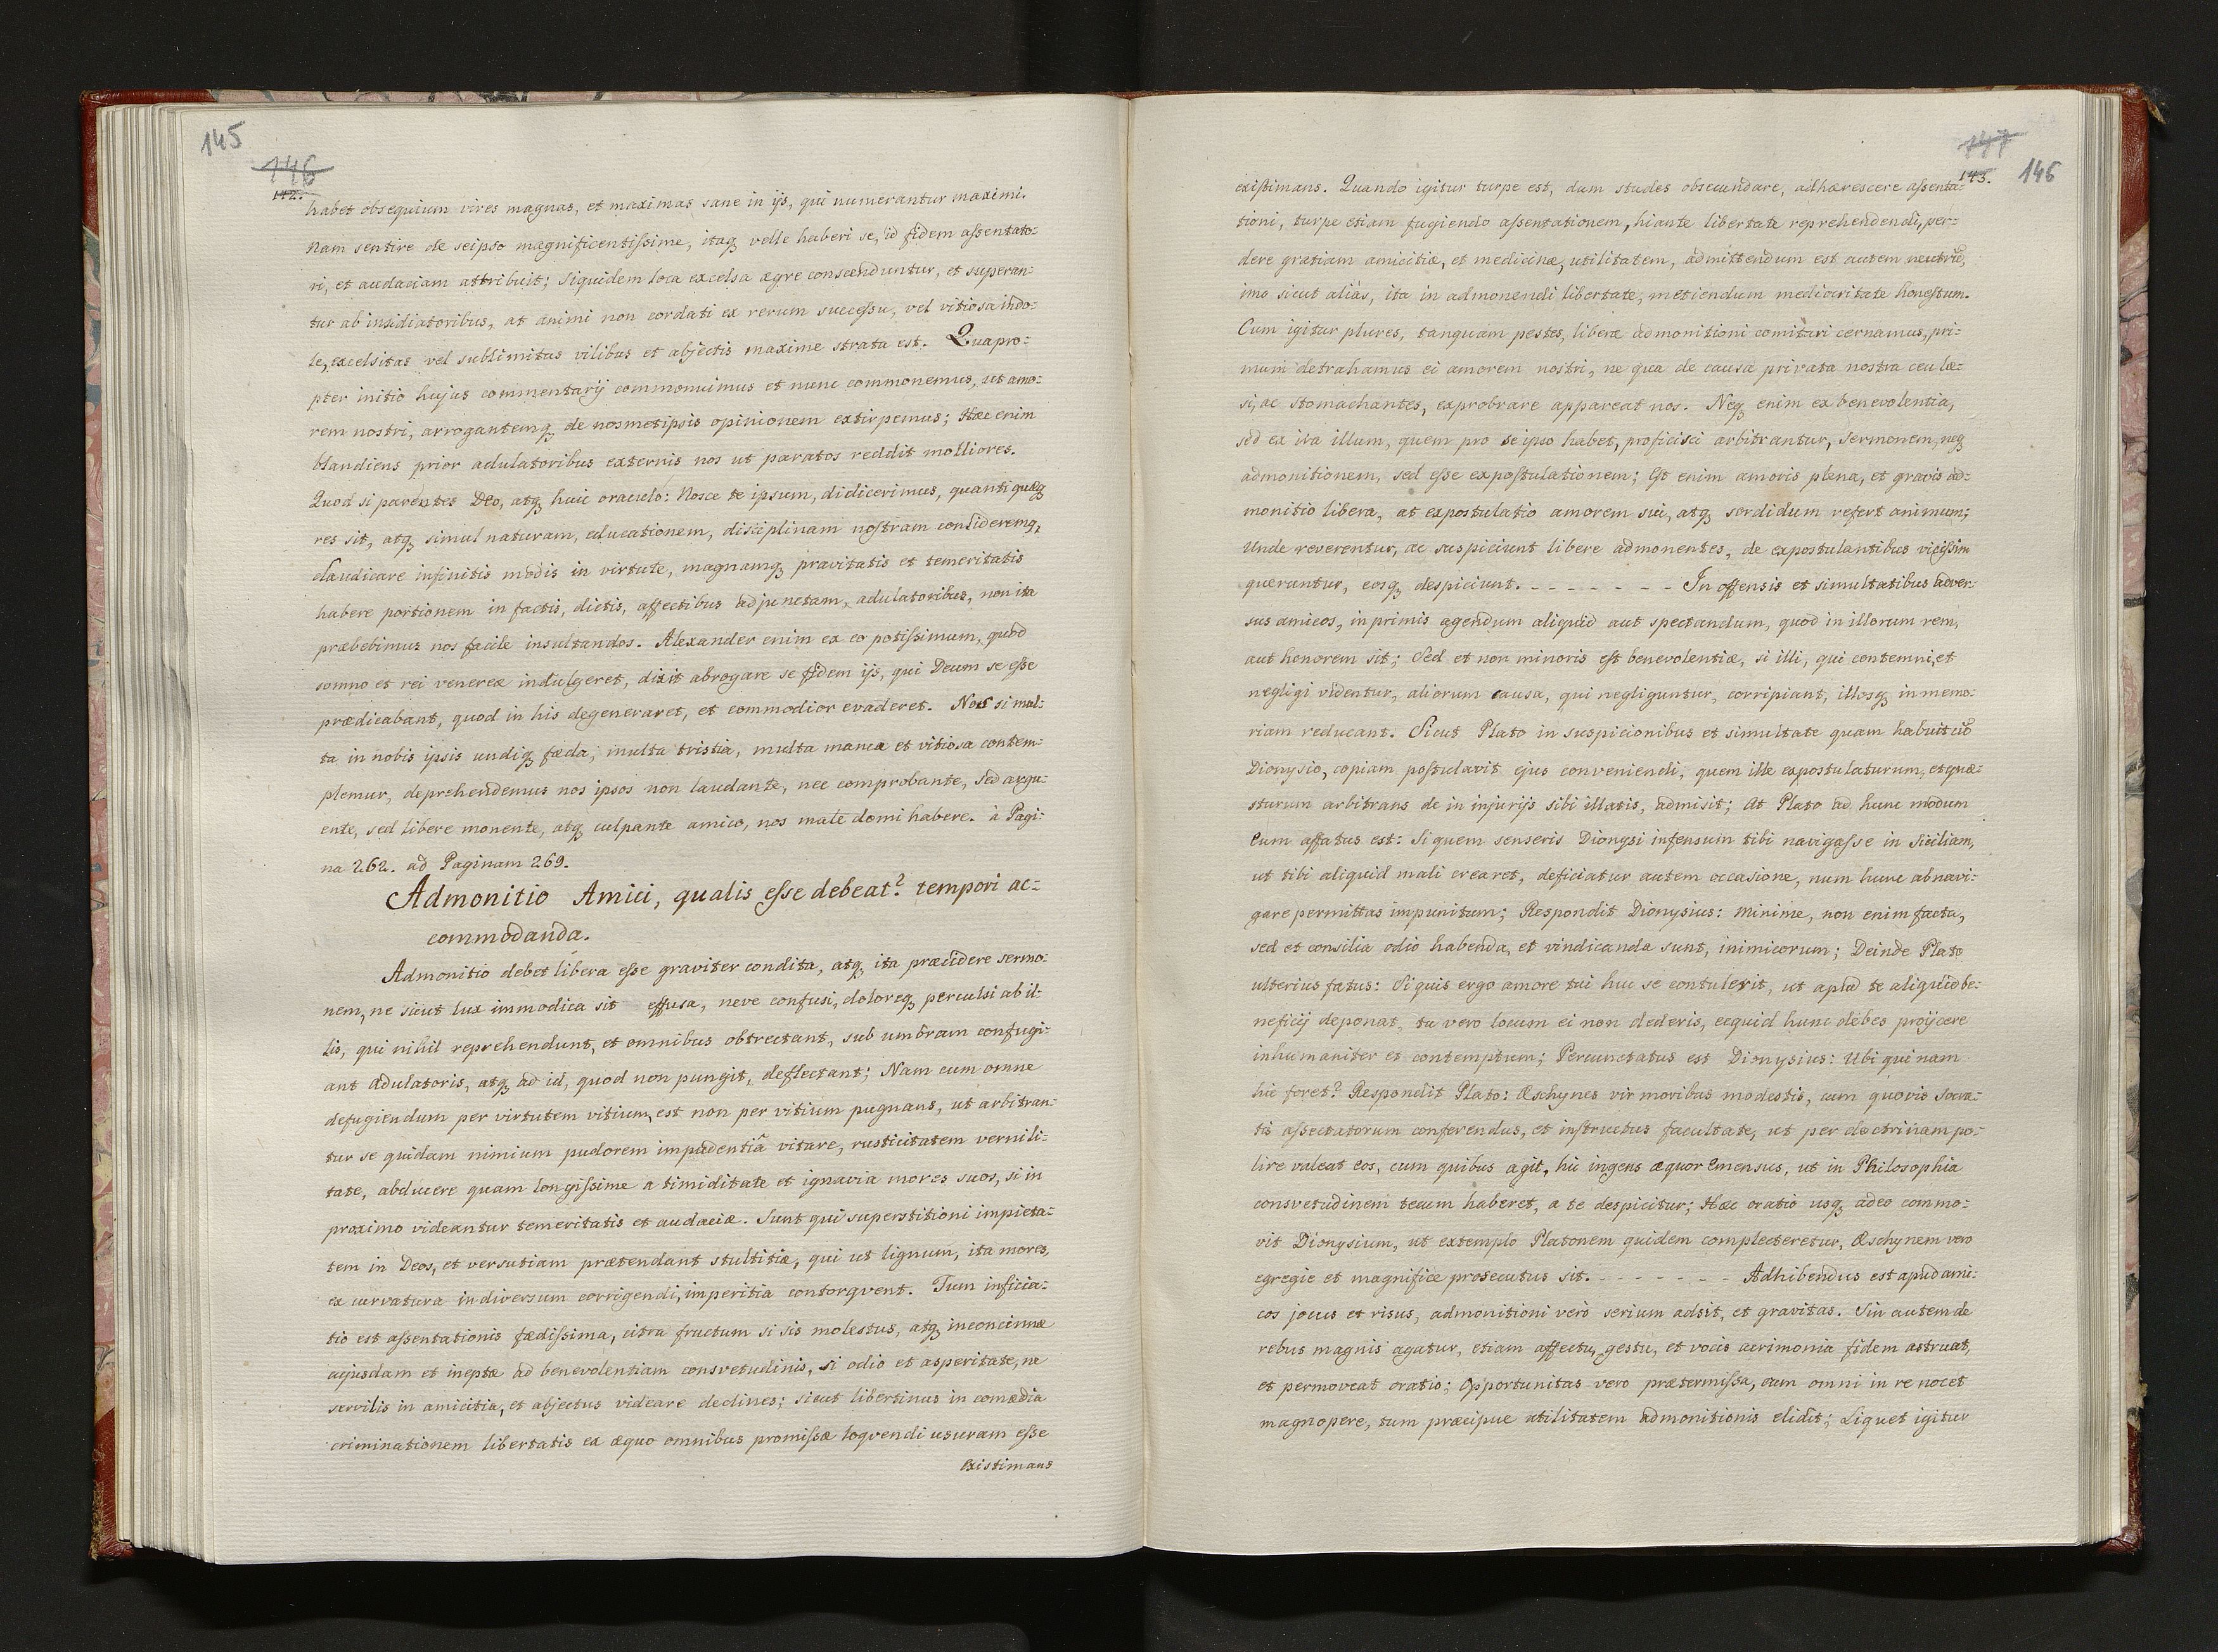 145
146
142.
habet obsequium vires magnas, et maximas sane in ijs, qui numerantur maximi.
Nam sentire de seipso magnificentissime, itaq velle haberi se, id fidem assentato=
ri, et audaciam attribuit; Siquidem loca excelsa ægre conscenduntur, et superan=
tur ab insidiatoribus, at animi non cordati ex rerum successu, vel vitiosa indo=
le, excelsitas vel sublimitas vilibus et abjectis maxime strata est. Quapro=
pter initio hujus commentarij commonuimus et nunc commonemus, ut amo=
rem nostri, arrogantemq de nosmetipsis opinionem extirpemus; Hæc enim
blandiens prior adulatoribus externis nos ut paratos reddit molliores.
Quod si parentes Deo, atq huic oraculo: Nosce te ipsum, didicerimus, quanti quæq
res sit, atq simul naturam, educationem, disciplinam nostram consideremq,
claudicare infinitis modis in virtute, magnamq pravitatis et temeritatis
habere portionem in factis, dictis, affectibus adjunctam, adulatoribus, non ita
præbebimus nos facile insultandos. Alexander enim ex eo potissimum, quod
somno et rei venereæ indulgeret, dixit abrogare se fidem ijs, qui Deum se esse
prædicabant, quod in his degeneraret, et commodior evaderet. Nos si mul=
ta in nobis ipsis undiq fæda, multa tristia, multa manca et vitiosa contem=
plemur, deprehendemus nos ipsos non laudante, nec comprobante, sed argu=
ente, sed libere monente, atq culpante amico, nos male domi habere. à Pagi=
na 262. ad Paginam 269.
Admonitio Amici, qualis esse debeat? tempori ac=
commodanda.
Admonitio debet libera esse graviter condita, atq ita præcidere sermo=
nem, ne sicut lux immodica sit effusa, neve confusi, doloreq perculsi ab il=
lis, qui nihil reprehendunt, et omnibus obtrectant, sub umbram confugi=
ant adulatoris, atq ad id, quod non pungit, deflectant; Nam cum omne
defugiendum per virtutem vitium, est non per vitium pugnans, ut arbitran=
tur se quidam nimium pudorem impudentiâ vitare, rusticitatem vernili=
tate, abducere quam longissime a timiditate et ignavia mores suos, si in
proximo videantur temeritatis et audaciæ. Sunt qui superstitioni impieta=
tem in Deos, et versutiam prætendant stultitiæ, qui ut lignum, ita mores,
ex curvatura in diversum corrigendi, imperitia contorqvent. Tum inficia=
tio est assentationis fædissima, citra fructum si sis molestus, atq inconcinnæ
cujusdam et ineptæ ad benevolentiam consvetudinis, si odio et asperitate, ne
servilis in amicitia, et abjectus videare declines; sicut libertinus in comædia
criminationem libertatis ex æquo omnibus promissæ loqvendi usuram esse
existimans
147
143.
146
existimans. Quando igitur turpe est, dum studes obsecundare, adhærescere assenta=
tioni, turpe etiam fugiendo assentationem, hiante libertate reprehendendi, per=
dere gratiam amicitiæ, et medicinæ, utilitatem, admittendum est autem neutrū,
imo sicut aliàs, ita in admonendi libertate, metiendum mediocritate honestum.
Cum igitur plures, tanquam pestes, liberæ admonitioni comitari cernamus, pri=
mum detrahamus ei amorem nostri, ne qua de causa privata nostra ceu læ=
si, ac stomachantes, exprobrare appareat nos. Neq enim ex benevolentia,
sed ex ira illum, quem pro se ipso habet, proficisci arbitrantur, sermonem, neq
admonitionem, sed esse expostulationem; Est enim amoris plena, et gravis ad=
monitio libera, at expostulatio amorem sui, atq sordidum refert animum;
Unde reverentur, ac suspiciunt libere admonentes, de expostulantibus vicissim
queruntur, eosq despiciunt. - - - - - - - - In offensis et simultatibus adver=
sus amicos, in primis agendum aliquid aut spectandum, quod in illorum rem,
aut honorem sit; Sed et non minoris est benevolentiæ, si illi, qui contemni, et
negligi videntur, aliorum causa, qui negliguntur, corripiant, illosq in memo=
riam reducant. Sicut Plato in suspicionibus et simultate quam habuit cū
Dionysio, copiam postulavit ejus conveniendi, quem ille expostulaturum, et quæ=
sturum arbitrans de in injurijs sibi illatis, admisit; At Plato ad hunc modum
eum affatus est: Si quem senseris Dionysi infensum tibi navigasse in Siciliam,
ut tibi aliquid mali crearet, deficiatur autem occasione, num hunc abnavi=
gare permittas impunitum; Respondit Dionysius: Minime, non enim facta,
sed et consilia odio habenda, et vindicanda sunt, inimicorum; Deinde Plato
ulterius fatus: Si quis ergo amore tui huc se contulerit, ut apud te aliquid be=
neficij deponat, tu vero locum ei non dederis, ecquid hunc debes projicere
inhumaniter et contemptum; Percunctatus est Dionysius: Ubi quinam
hic foret? Respondit Plato: Æschynes vir moribus modestis, cum quovis Socra=
tis assectatorum conferendus, et instructus facultate, ut per doctrinam po=
lire valeat eos, cum quibus agit, hic ingens æquor emensus, ut in Philosophia
consvetudinem tecum haberet, a te despicitur; Hæc oratio usq adeo commo=
vit Dionysium, ut extemplo Platonem quidem complecteretur, Æschynem vero
egregie et magnifice prosecutus sit. - - - - - - - - Adhibendus est apud ami=
cos jocus et risus, admonitioni verò serium adsit, et gravitas. Sin autem de
rebus magnis agatur, etiam affectu, gestu, et vocis acrimonia fidem astruat,
et permoveat oratio; Opportunitas vero prætermissa, cum omni in re nocet
magnopere, tum præcipue utilitatem admonitionis elidit; Liquet igitur